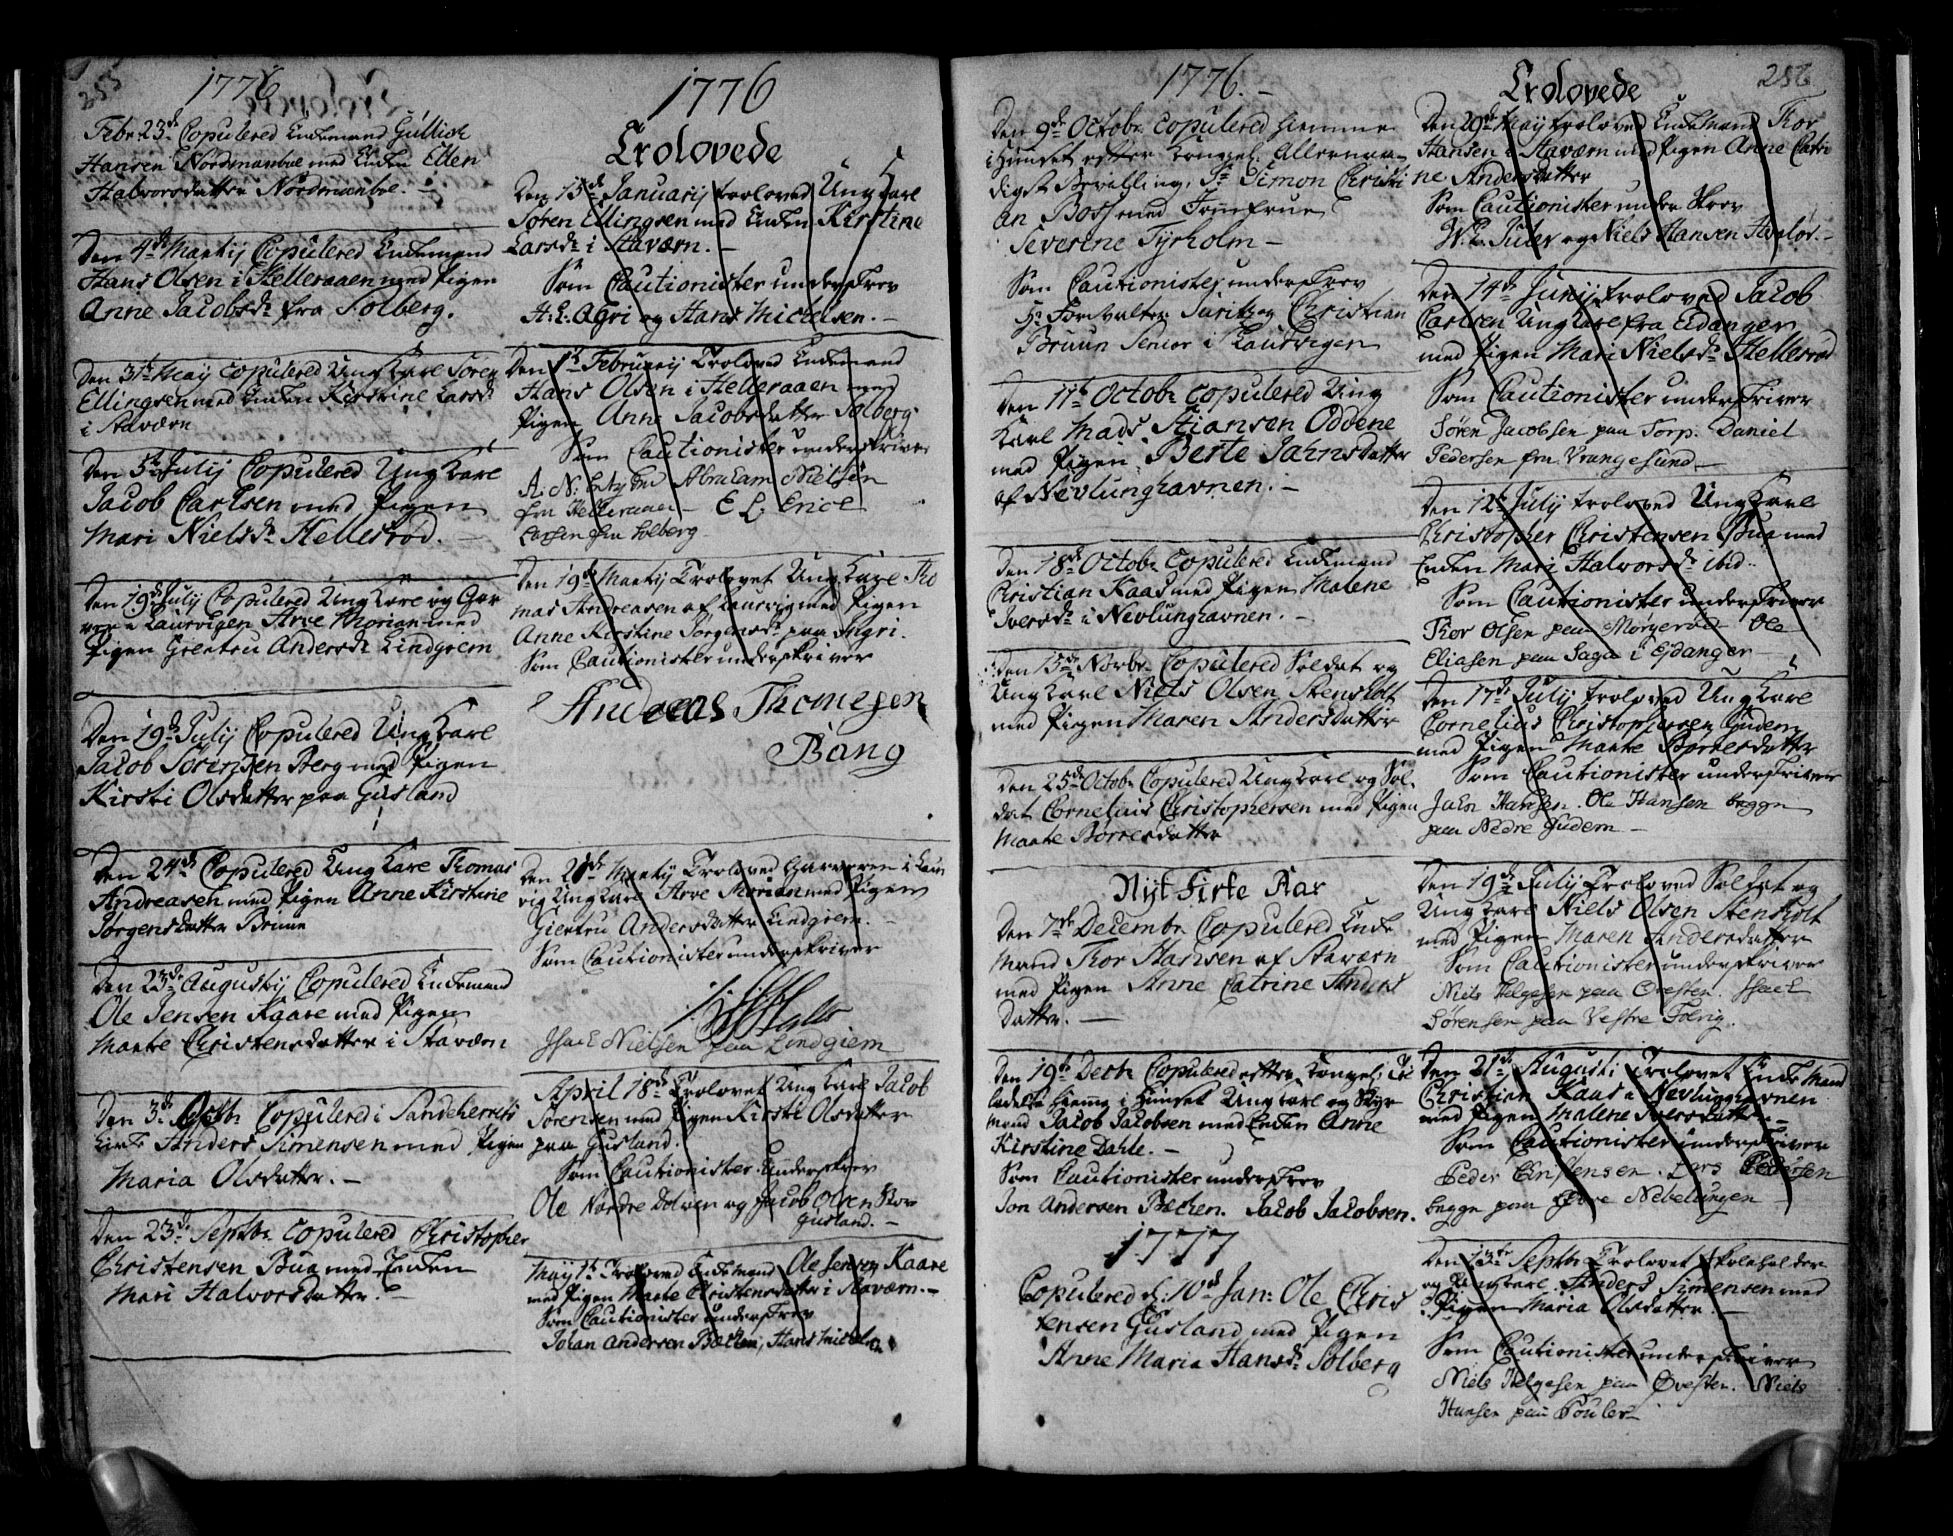 255
1776
Febr 23d. Copulered Enkemand Gullich
Hansen Nordmanboe med Enken Ellen
Halvorsdatter Nordmanboe. -
Den 4de Martij Copulered Enkemand
Hans Olsen i Helleraaen med Pigen
Anne Jacobsdr fra Solberg.
Den 31te Maij Copulered Ung Karl Søren
Ellingsen med Enken Kirstine Larsdr
i Staværn
Den 5te Julij Copulered Ung Karl
Jacob Carlsen med Pigen
Mari Nielsdr Hellesrød.
Den 19de Julij Copulered Ung Karl og Gar
ver i Laurvigen Arve Morian med
Pigen Giertru Andersdr Lindgiem
Den 19de Julij Copulered Ung Karl
Jacob Sørensen Berg med Pigen
Kirsti Olsdatter paa Gusland
Den 24de Copulered Ung Karl Thomas
Andreasen med Pigen Anne Kirstine
Jørgensdatter Bruun
Den 23de Augustij Copulered Enkemand
Ole Jensen Kaare med Pigen
Marte Christensdatter i Staværn
Den 3de Septbr Copulered i Sandeherrets
Kirke Anders Simensen med Pigen
Maria Olsdatter. -
Den 23de Septbr Copulered Christopher
Christensen Bua med Enken
Mari Halvorsdatter. -
1776
Trolovede
Den 15de Januarij troloved Ung Karl
Søren Ellingsen med Enken Kirstine
Larsdr i Staværn. -
Som Cautionister underskrev
H. L. Agri og Hans Michelsen. -
Den 1te Februarij Trolovet Enkemand
Hans Olsen i Helleraaen med
Pigen Anne Jacobsdatter Solberg
Som Cautionister underskriver
A: N: Abraham Nielsen
fra Helleraaen - E L. Erich
Larsen fra Solberg
Den 19de Martij Trolovet Ung Karl Tho
mas Andreasen af Laurvig med Pigen
Anne Kirstine Jørgensdr paa Agri.
Som Cautionister underskriver
Andreas Thomesen
Bang
Den 28de Martij Troloved Garveren i Laur
vig Ung Karl Arve Morian med Pigen
Giertru Andersdatter Lindgiem. -
Som Cautionister underskriver
Isach Nielsen paa Lindgiem
April 18de Trolovet Ung Karl Jacob
Sørensen med Pigen Kirsti Olsdatter
paa Gusland.
Som Cautionister underskrev
Ole Nordre Dolven og Jacob Olsen
Gusland. -
Maij 1te Trolovet Enkemand Ole Jensen Kaare
med Pigen Marte Christensdatter i Staværn. -
Som Cautionister underskrev
Johan Andersen Bæcken, Hans Michelsen
1776. -
Den 9de Octobr copulered hiemme
i Huuset efter Kongel. Allernaa-
digst Bevilling, Sr Simon Christi
an Boss med Jomfrue
Severine Tyrholm -
Som Cautionister underskrev
Hr Forvalter og Christian
Bruun Senior i Laurvigen
Den 11te Octobr copulered Ung
Karl Mads Stiansen Oddene
med Pigen Berte Jahnsdatter
af Nevlunghavnen. -
Den 18de Octobr Copulered Enkemand
Christian Kaas med Pigen Malene
Iversdr i Nevlunghavnen. -
Den 15de Novbr Copulered Soldat og
Ung Karl Niels Olsen Stensholt
med Pigen Maren Andersdatter
Den 25de Octobr Copulered Ung Karl og Sol
dat Cornelius Christophersen med Pigen
Marte Borresdatter
Nyt Kirke Aar
Den 7de Decembr Copulered Enke
Mand Thor Hansen af Staværn
med Pigen Anne Catrine Anders
datter. -
Den 19de Decbr Copulered efter Kongel: Til
ladelse hiemme i Huuset Ung Karl og Styr
mand Jacob Jacobsen med Enken Anne
Kirstine Dahle. -
Som Cautionister underskrev
Jon Andersen Bæcken. Jacob Jacobsen.
1777
Copulered d: 10de Jan: Ole Chris
tensen Gusland med Pigen
Anne Maria Hansdr Solberg
256
Trolovede
Den 29de Maij troloved Enkemand Thor
Hansen i Staværn med Pigen Anne Catri
ne Andersdatter
Som Cautionister underskrev
og Niels Hansen
Den 14de Junij troloved Jacob
Carlsen Ung Karl fra Eidanger
med Pigen Mari Nielsdr Hellesrød
Som Cautionister underskriver
Søren Jacobsen paa Torp. Daniel
Pedersen fra Vrangesund. -
Den 12te Julij trolovet Ung Karl
Christopher Christensen Bua med
Enken Mari Halvorsdr ibid.
Som Cautionister underskriver
Thor Olsen paa Mørgerød Ole
Eliasen paa Saga i Ejdanger
Den 17de Julij trolovet Ung Karl
Cornelius Christophersen Gudem
med Pigen Marte Borresdatter
Som Cautionister underskriver
Jahn Hansen. Ole Hansen begge
paa Nedre Gudem -
Den 19de Julij Trolovet Soldat og
Ung Karl Niels Olsen Stensholt
med Pigen Maren Andersdatter
Som Cautionister underskriver
Niels Helgesen paa Ovesten. Isach
Sørensen paa Vestre
Den 21de Augusti Trolovet Enke Mand
Christian Kaas i Nevlunghavnen
med Pigen Malene Iversdatter -
Som Cautionister underskriver
Peder Lars Pedersen
begge paa Nebelungen
Den 13de Septbr Trolovet Skoleholder
og Ung Karl Anders Simensen med
Pigen Maria Olsdatter. -
Som Cautionister underskriver
Niels Helgesen paa Ovesten. Niels
Hansen paa